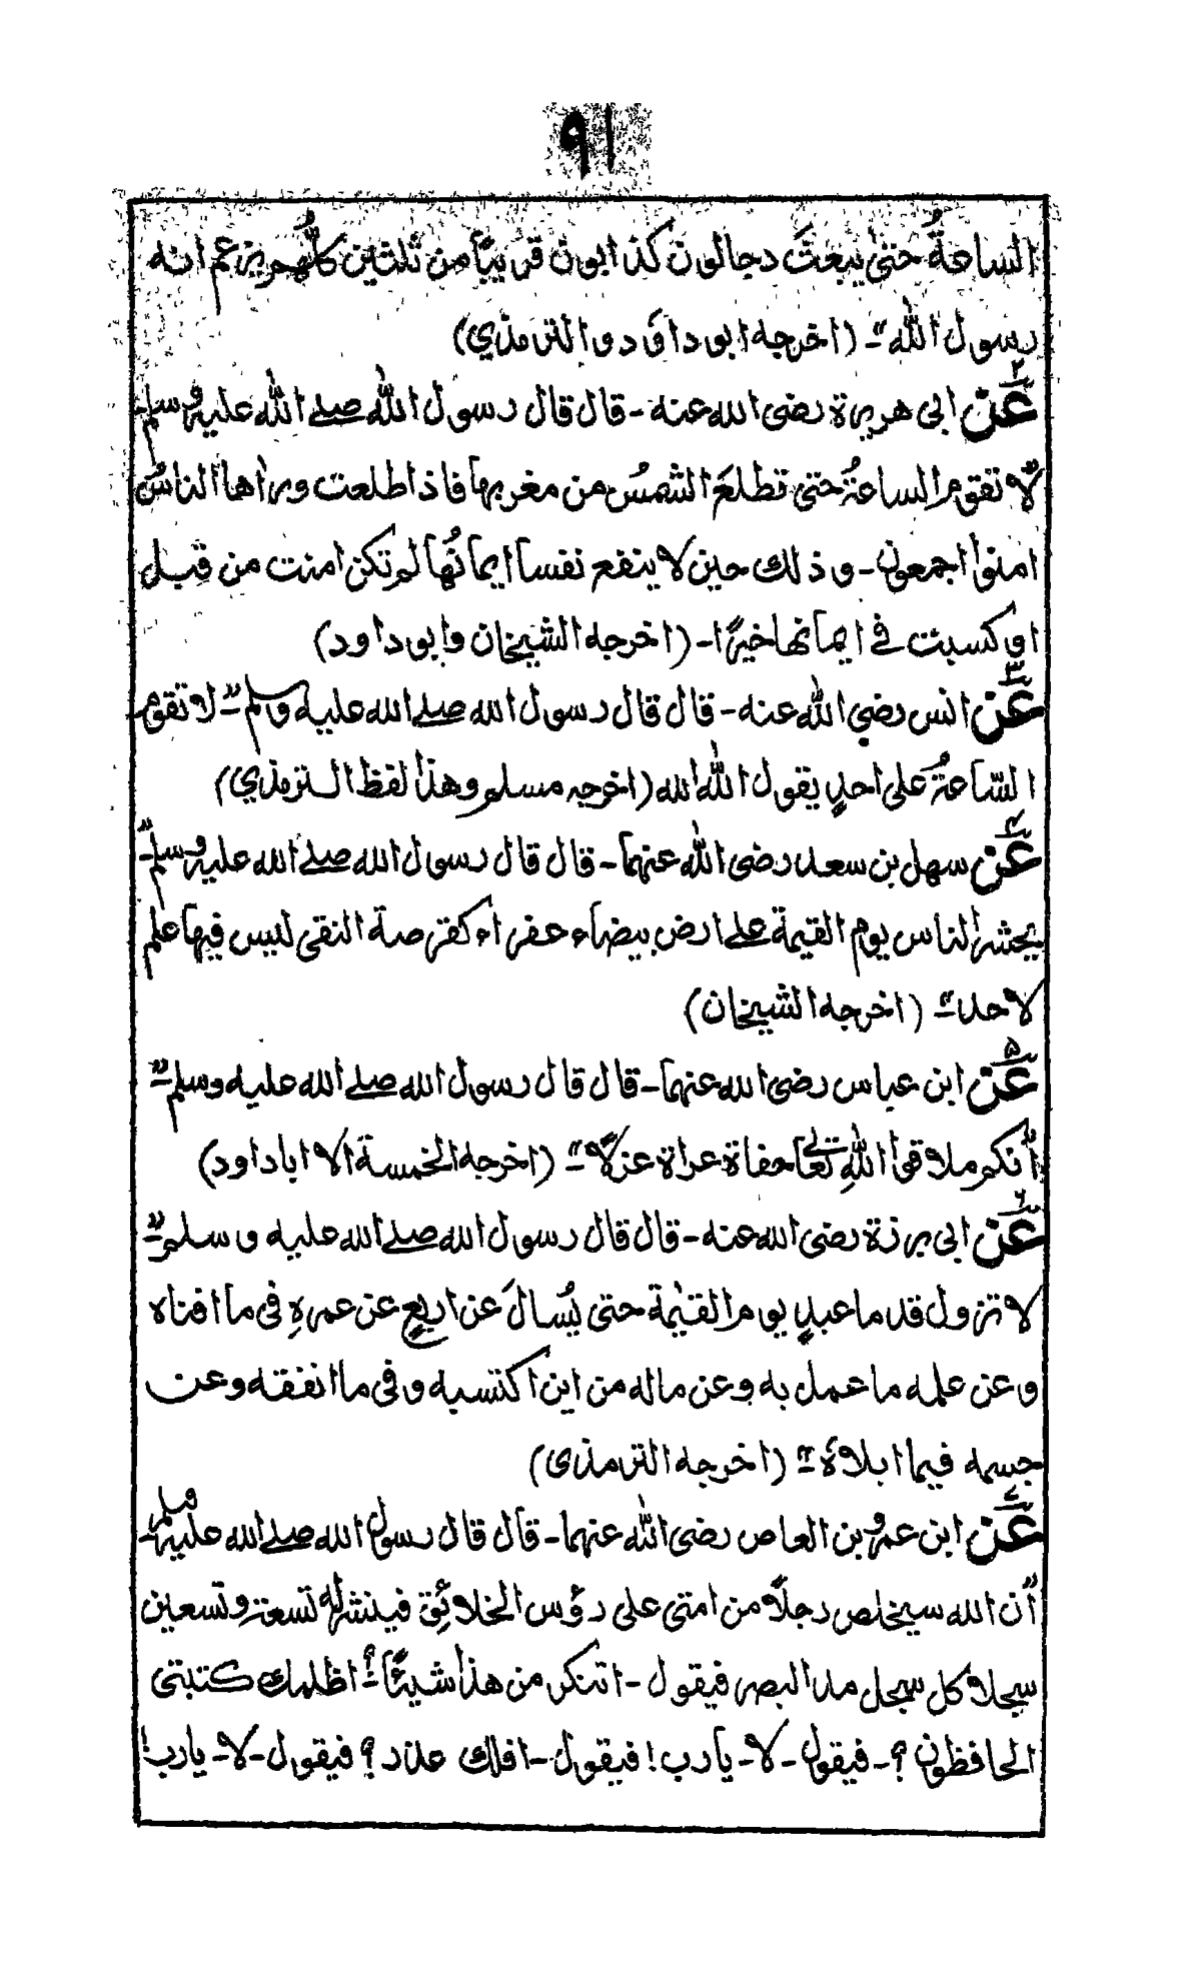 ٩١
الساعةُ حتیٰ يبعثَ دجالون كذابون قريبًا من ثلثين كلُّهم يزعم انه
رسول الله"۔ (اخرجه ابو داؤد والترمذي)
٢ عن ابی هريرة رضی الله عنه۔ قال قال رسول الله صلے الله عليه وسلم
"لا تقوم الساعةُ حتیٰ تطلعَ الشمسُ من مغربها فاذا طلعت وراٰها الناسُ
امنوا اجمعون۔ وذلك حين لا ينفع نفسا ايمانُها لم تكن امنت من قبل
او كسبت فے ايمانها خيرًا۔ (اخرجه الشيخان وابو داود)
٣ عن انس رضي الله عنه۔ قال قال رسول الله صلے الله عليه وسلم" لا تقوم
السّاعةُ علی احدٍ يقول الله الله (اخرجه مسلم وهذا لفظ الترمذي)
٤ عن سهل بن سعد رضی الله عنهما۔ قال قال رسول الله صلے الله عليه وسلم"
يحشر الناس يوم القيمة علے ارض بيضاء عفراء كقرصة النقی ليس فيها علم
لاحد" (اخرجه الشيخان)
٥ عن ابن عباس رضی الله عنهما۔ قال قال رسول الله صلے الله عليه وسلم"
اُنكم ملاقوا اللهِ تعالیٰ حفاة عراة عزلًا" (اخرجه الخمسة الا ابا داود)
٦ عن ابی برزة رضی الله عنه۔ قال قال رسول الله صلے الله عليه وسلم"
لا تزول قدما عبدٍ يوم القيٰمة حتی يُسالَ عن اربعٍ عن عمرهِ فی ما افناه
وعن علمه ما عمل به وعن ماله من اين اكتسبه وفی ما انفقه وعن
جسمه فيما ابلاهُ" (اخرجه الترمذی)
٧ عن ابن عمرو بن العاص رضی الله عنهما۔ قال قال رسول الله صلے الله عليه وسلم
"ان الله سيخلص رجلًا من امتی علی رؤس الخلائق فينشر له تسعة وتسعين
سجلا كل سجل مد البصر فيقول۔ اتنكر من هذا شيئًا؟ اظلمك كتبتی
الحافظون؟۔ فيقول۔ لا۔ يارب! فيقول۔ افلك عذر؟ فيقول۔ لا۔ يارب!